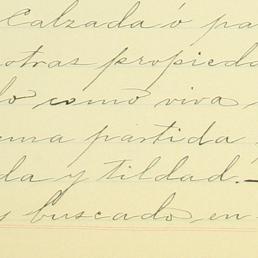 Calzada ó pa
otras propieda
lo como viva
ma partida
da y tildad.—
s buscado, en